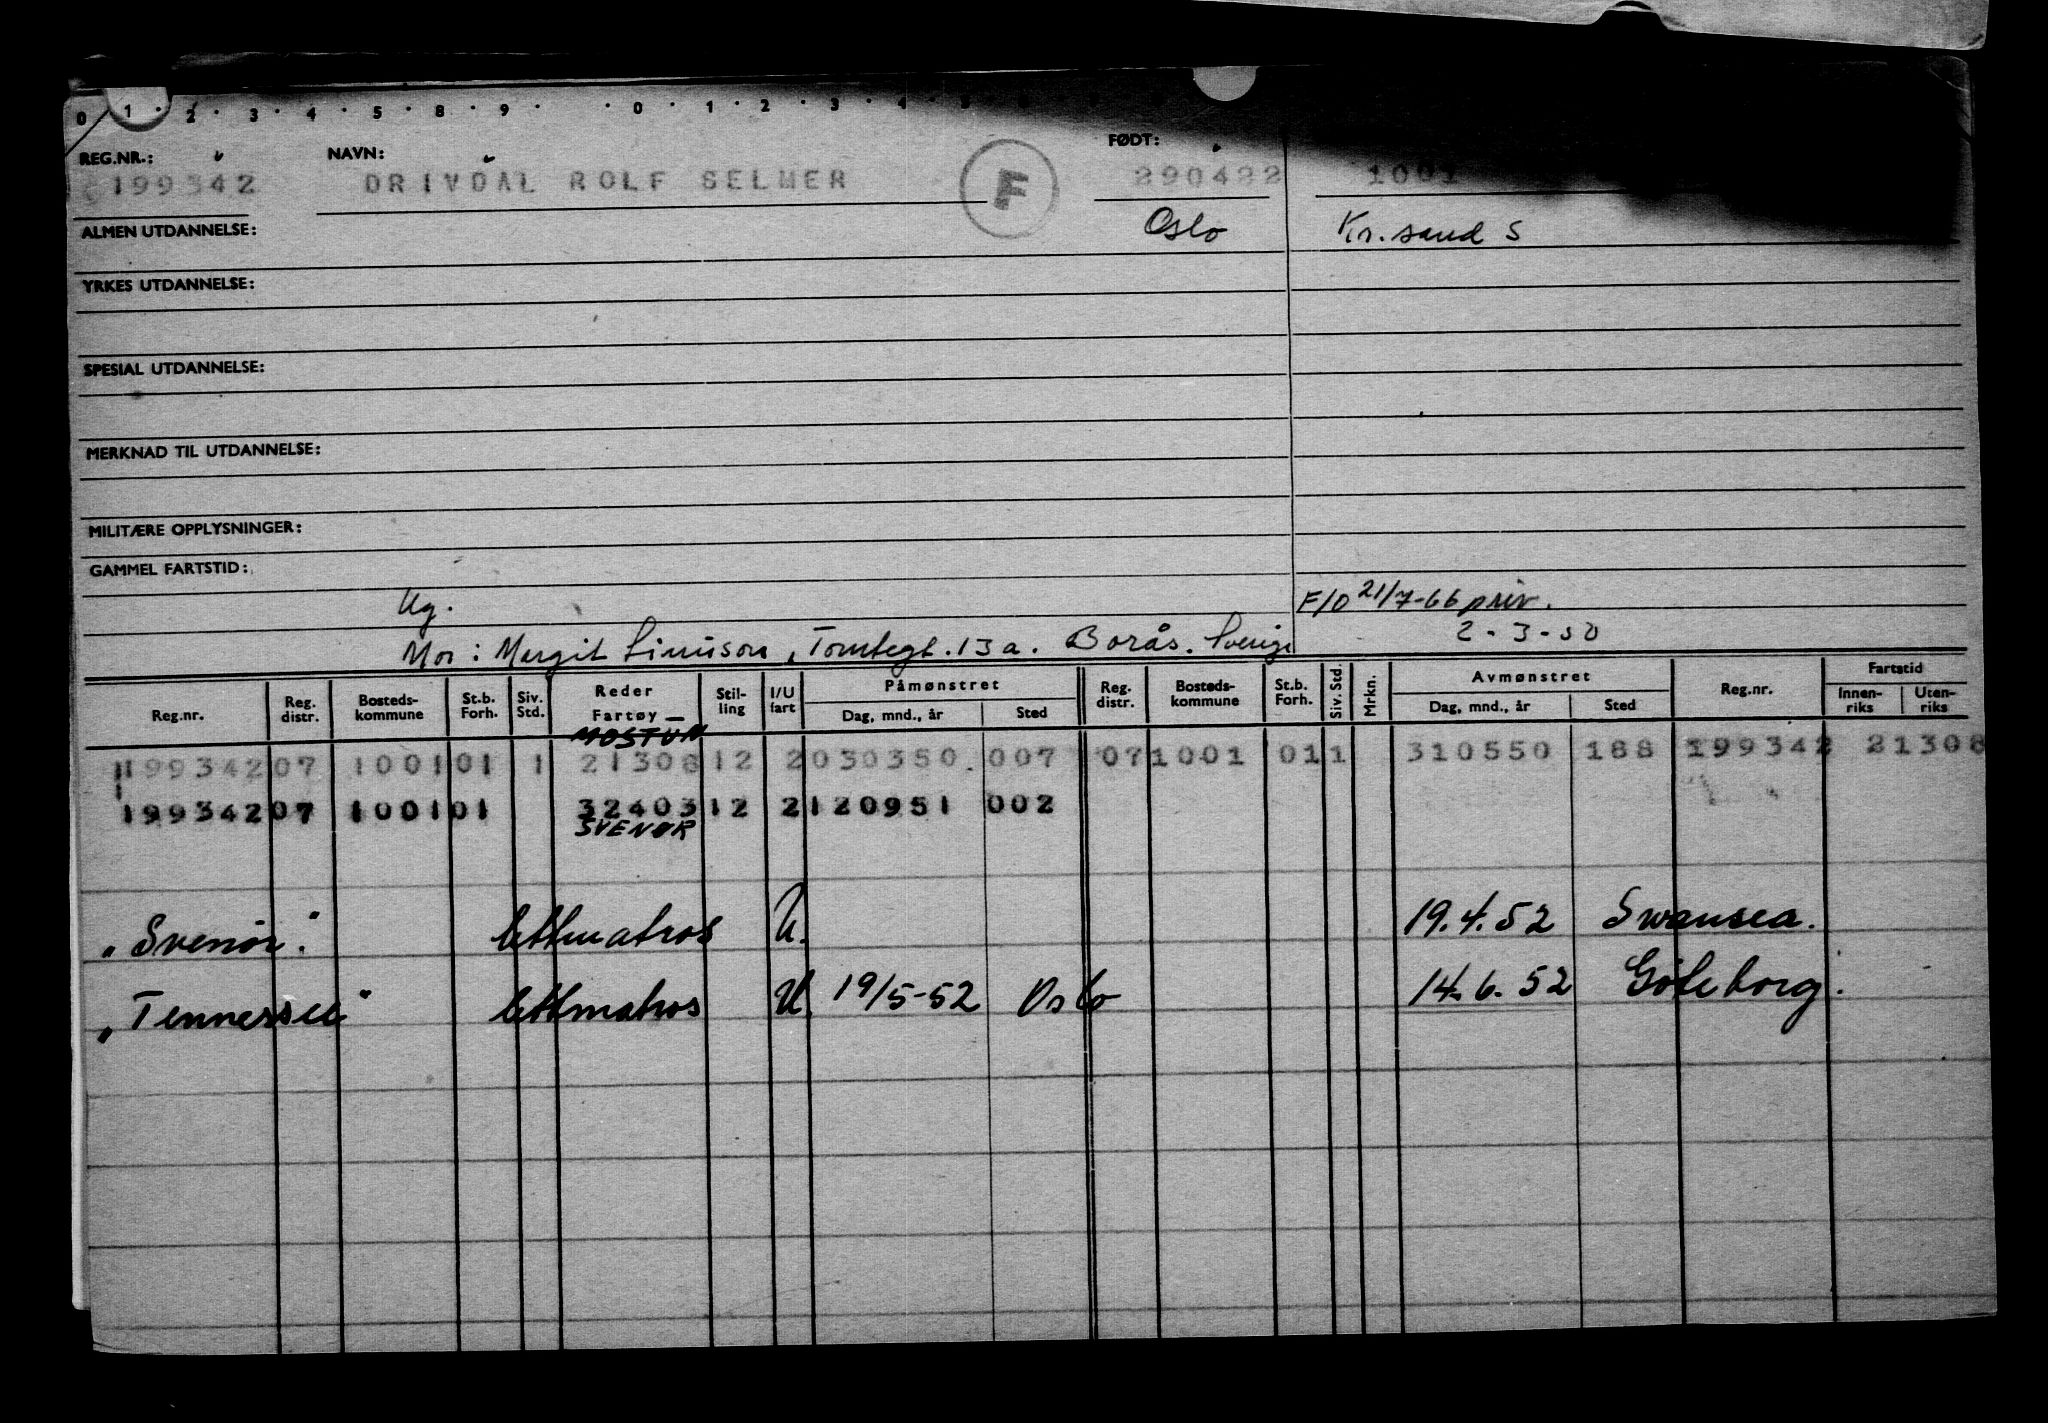 0 1 · 2 · 3 · 4 · 5 · 8 · 9 · · 0 · 1 · 2 · 3 · 4 · 5
REG.NR.: NAVN: FØDT:
199342 DRIVDAL ROLF SELMER F 290422 1001
ALMEN UTDANNELSE: Oslo Kr.sand S
YRKES UTDANNELSE:
SPESIAL UTDANNELSE:
MERKNAD TIL UTDANNELSE:
MILITÆRE OPPLYSNINGER:
GAMMEL FARTSTID:
Ug. F/O 21/7-66 priv.
Mor: Margit Tomtegt. 13a. Borås. Sverige 2-3-50
Reg.nr. Reg. distr. Bosteds-kommune St.b. Forh. Siv. Std. Reder Fartøy Stil-ling I/U fart Påmønstret Dag, mnd., år Sted Reg. distr. Bosteds-kommune St.b. Forh. Siv. Std. Mrkn. Avmønstret Dag, mnd., år Sted Reg.nr. Fartstid Innen-riks Uten-riks
MOSTUN
199342 07 1001 01 1 21308 12 2 030350 007 07 1001 01 1 310550 188 199342 21308
199342 07 1001 01 32403 12 2 120951 002
SVENØR
"Svenör." lettmatros U. 19.4.52 Swansea.
"Tennessee" lettmatros U. 19/5-52 Oslo 14.6.52 Göteborg.